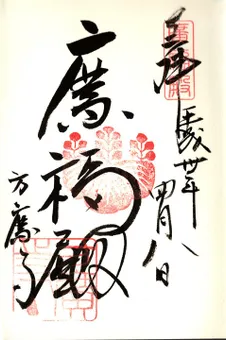 奉拝
平成卅年四月八日
廣福殿
方廣寺